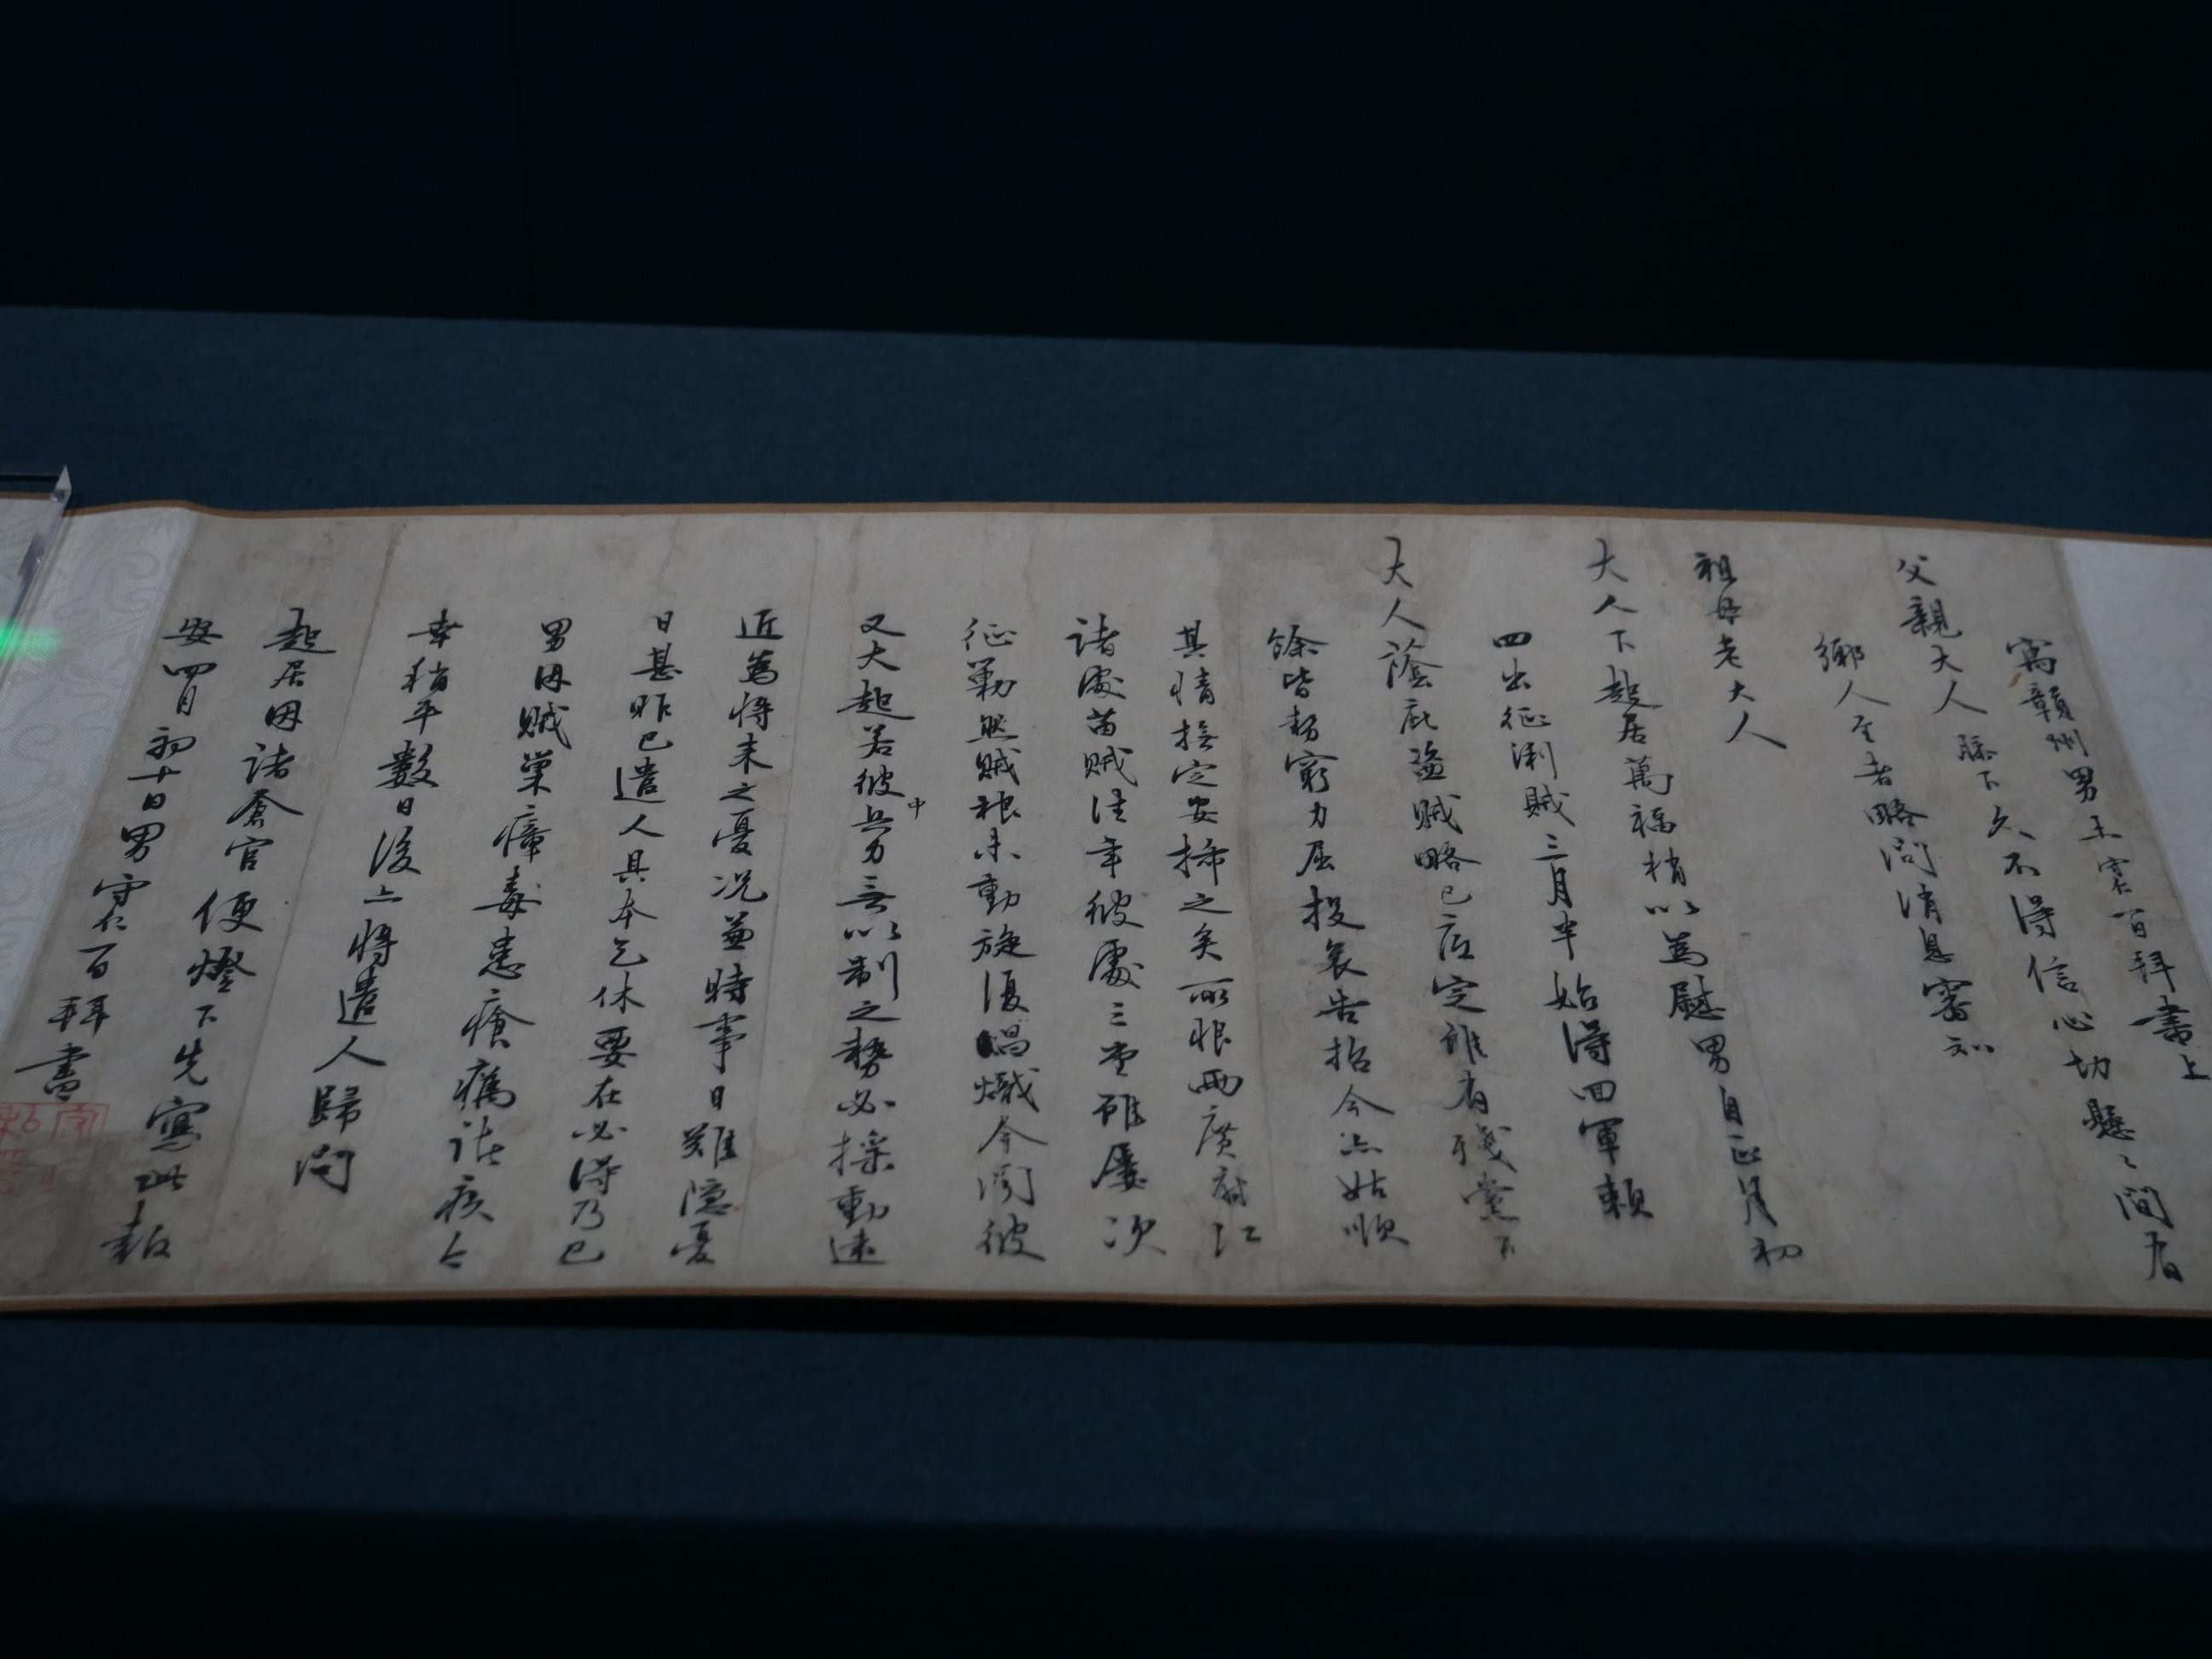 寓贛州男王守仁百拜書上
父親大人膝下久不得信心切懸〻間有
鄉人至者略問消息審知
祖母老大人
大人下起居萬福稍以為慰男自正月初
四出征浰賊三月半始得回軍賴
大人蔭庇盜賊略已底定雖有殘黨下
餘皆勢窮力屈投哀告招今亦姑順
其情撫定安插之矣所恨兩廣府江
諸處苗賊往年彼處三堂雖屢次
征勦然賊根未動旋復倡熾今聞彼
又大起若彼中兵力無以制之勢必搖動遠
近為將來之憂況兼時事日難隱憂
日甚昨已遣人具本乞休要在必得乃已
男因賊巢瘴毒患瘡癘諸疾今
幸稍平數日後亦將遣人歸問
起居因諸倉官便燈下先寫此報
安四月初十日男守仁百拜書